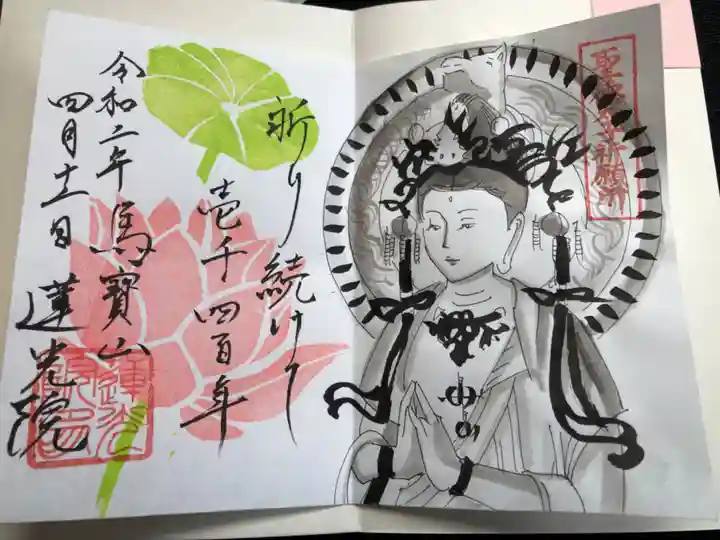 祈り続けて
壱千四百年
馬寳山
蓮光院
令和二年
四月十一日